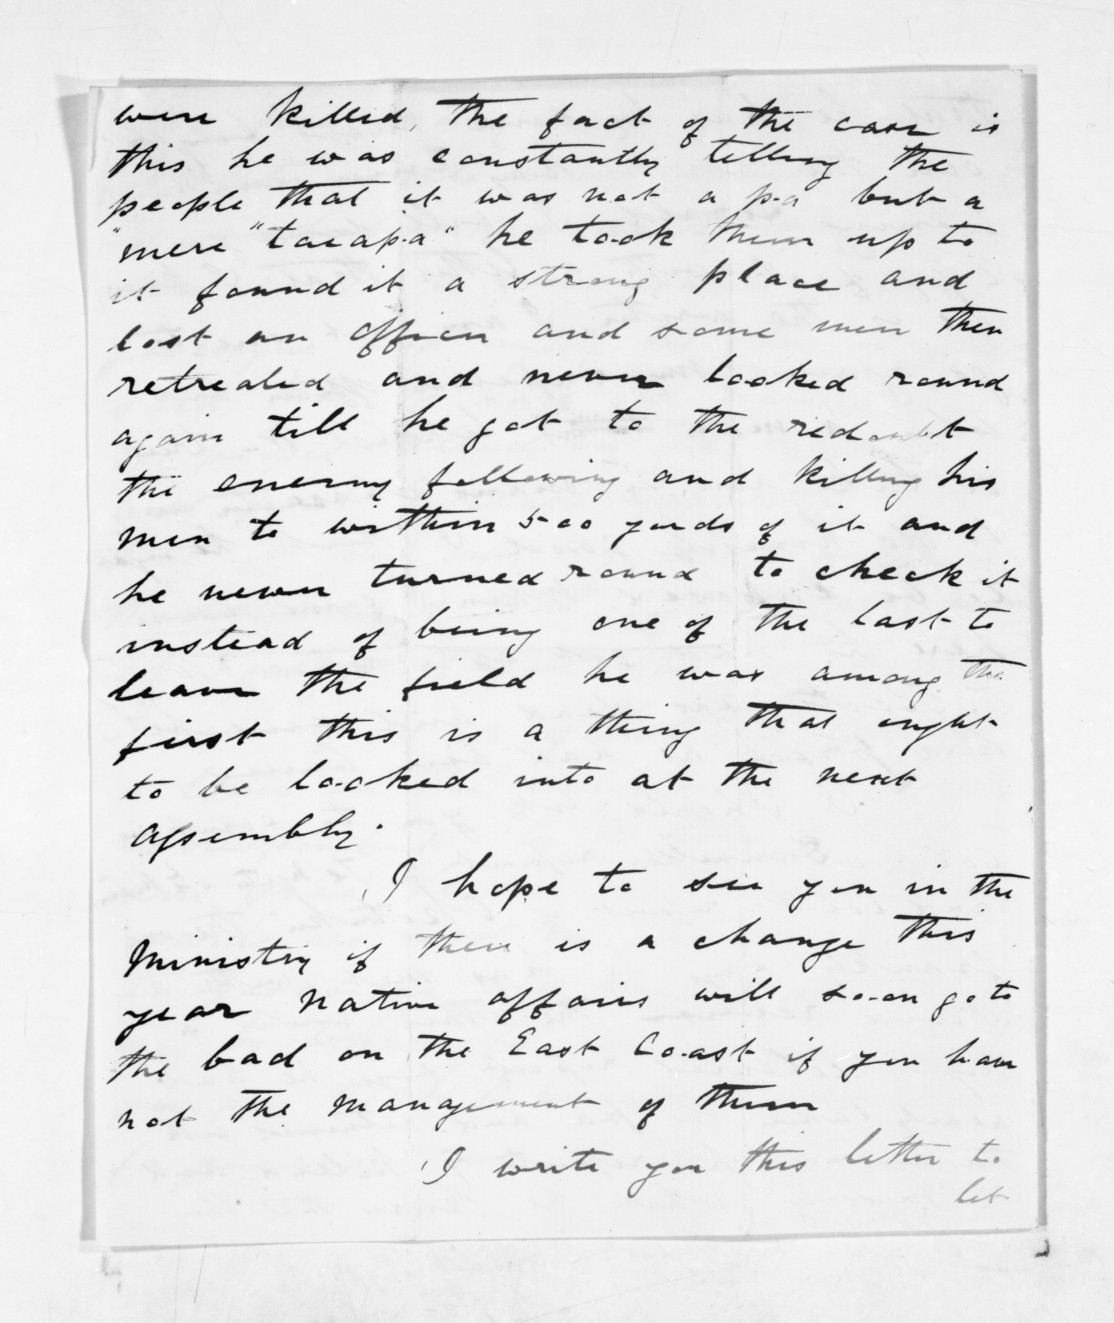 were killed, the fact of the case is
this he was constantly telling the
people that it was not a pa but a
"mere "taiapa" he took them up to
it found it a strong place and
lost an officer and some men then
retreated and never looked round
again till he got to the redoubt
the enemy following and killing his
men to within 500 yards of it and
he never turned round to check it
instead of being one of the last to
leave the field he was among the
first this is a thing that ought
to be looked into at the next
Assembly.
I hope to see you in the
Ministry if there is a change this
year Native affairs will soon go to
the bad on the East Coast if you have
not the management of them
I write you this letter to
let